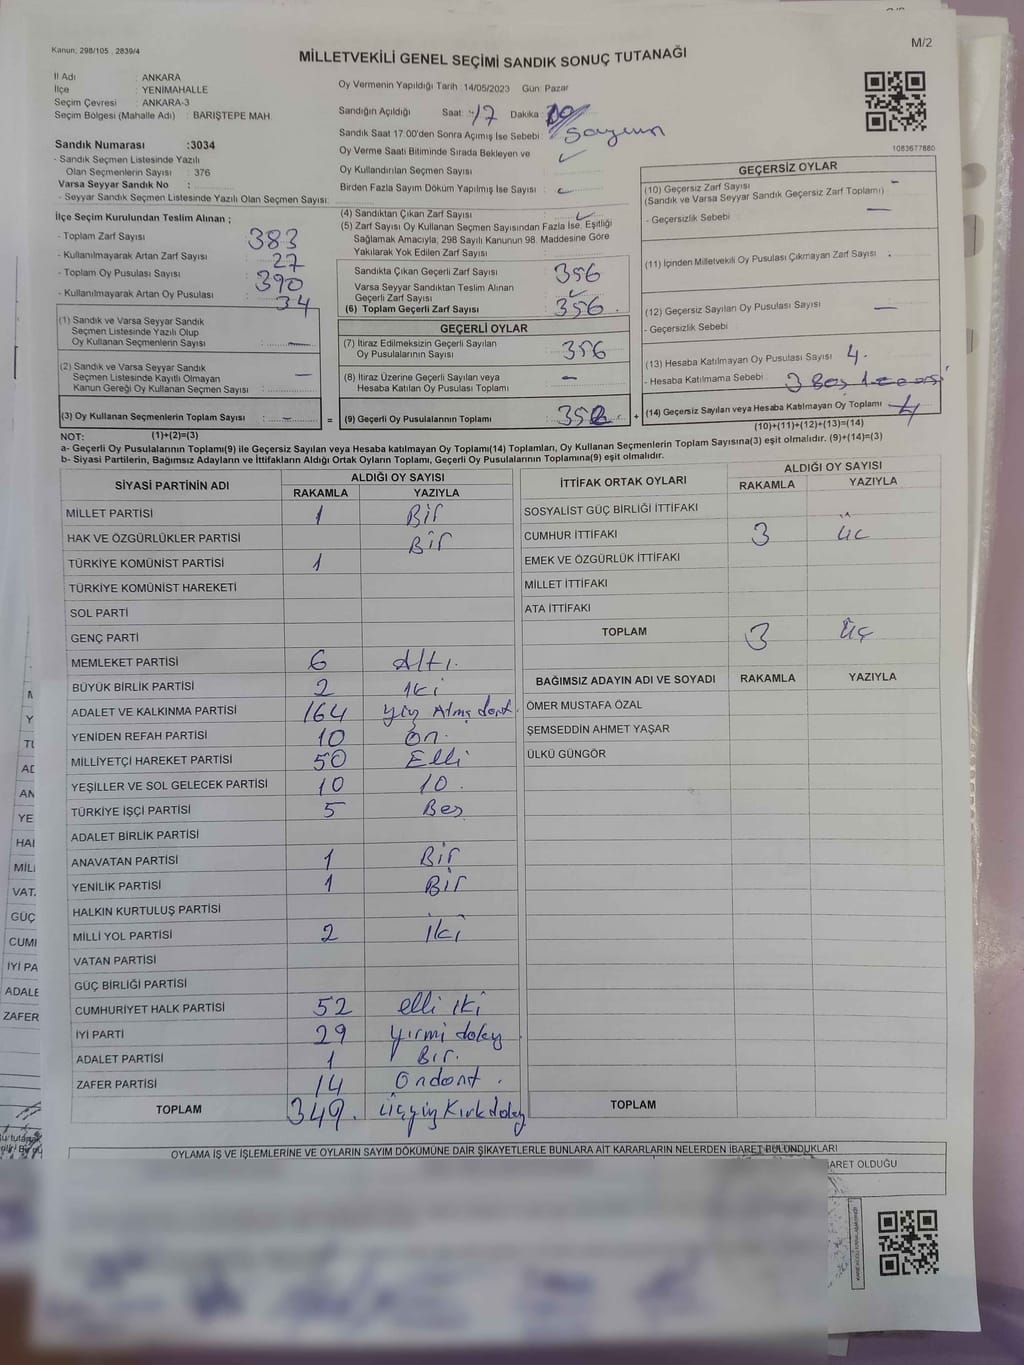 Kanun; 298/105 , 2839/4
M/2
MİLLETVEKİLİ GENEL SEÇİMİ SANDIK SONUÇ TUTANAĞI
İl Adı : ANKARA
İlçe : YENİMAHALLE
Seçim Çevresi : ANKARA-3
Seçim Bölgesi (Mahalle Adı) : BARIŞTEPE MAH.
Oy Vermenin Yapıldığı Tarih 14/05/2023 Gün: Pazar
Sandığın Açıldığı Saat: 17 Dakika
Sandık Saat 17:00'den Sonra Açımış İse Sebebi : Sayım
Oy Verme Saati Bitiminde Sırada Bekleyen ve
Oy Kullandırılan Seçmen Sayısı
Birden Fazla Sayım Döküm Yapılmış İse Sayısı :
1083677880
Sandık Numarası :3034
- Sandık Seçmen Listesinde Yazılı
Olan Seçmenlerin Sayısı : 376
Varsa Seyyar Sandık No :
- Seyyar Sandık Seçmen Listesinde Yazılı Olan Seçmen Sayısı:
İlçe Seçim Kurulundan Teslim Alınan ;
- Toplam Zarf Sayısı 383
- Kullanılmayarak Artan Zarf Sayısı 27
- Toplam Oy Pusulası Sayısı 390
- Kullanılmayarak Artan Oy Pusulası 34
(1) Sandık ve Varsa Seyyar Sandık
Seçmen Listesinde Yazılı Olup
Oy Kullanan Seçmenlerin Sayısı : —
(2) Sandık ve Varsa Seyyar Sandık
Seçmen Listesinde Kayıtlı Olmayan
Kanun Gereği Oy Kullanan Seçmen Sayısı : —
(3) Oy Kullanan Seçmenlerin Toplam Sayısı : — =
(4) Sandıktan Çıkan Zarf Sayısı
(5) Zarf Sayısı Oy Kullanan Seçmen Sayısından Fazla İse, Eşitliği
Sağlamak Amacıyla, 298 Sayılı Kanunun 98. Maddesine Göre
Yakılarak Yok Edilen Zarf Sayısı :
Sandıkta Çıkan Geçerli Zarf Sayısı 356
Varsa Seyyar Sandıktan Teslim Alınan
Geçerli Zarf Sayısı
(6) Toplam Geçerli Zarf Sayısı 356
GEÇERLİ OYLAR
(7) İtiraz Edilmeksizin Geçerli Sayılan
Oy Pusulalarının Sayısı 356
(8) İtiraz Üzerine Geçerli Sayılan veya
Hesaba Katılan Oy Pusulası Toplamı : —
(9) Geçerli Oy Pusulalarının Toplamı : 352 +
GEÇERSİZ OYLAR
(10) Geçersiz Zarf Sayısı —
(Sandık ve Varsa Seyyar Sandık Geçersiz Zarf Toplamı) : —
- Geçersizlik Sebebi :
(11) İçinden Milletvekili Oy Pusulası Çıkmayan Zarf Sayısı :
(12) Geçersiz Sayılan Oy Pusulası Sayısı : —
- Geçersizlik Sebebi
(13) Hesaba Katılmayan Oy Pusulası Sayısı 4.
- Hesaba Katılmama Sebebi
(14) Geçersiz Sayılan veya Hesaba Katılmayan Oy Toplamı 4
(10)+(11)+(12)+(13)=(14)
NOT: (1)+(2)=(3)
a- Geçerli Oy Pusulaların Toplamı(9) ile Geçersiz Sayılan veya Hesaba katılmayan Oy Toplamı(14) Toplamları, Oy Kullanan Seçmenlerin Toplam Sayısına(3) eşit olmalıdır. (9)+(14)=(3)
b- Siyasi Partilerin, Bağımsız Adayların ve İttifakların Aldığı Ortak Oyların Toplamı, Geçerli Oy Pusulalarının Toplamına(9) eşit olmalıdır.
SİYASİ PARTİNİN ADI ALDIĞI OY SAYISI
RAKAMLA YAZIYLA
MİLLET PARTİSİ 1 Bir
HAK VE ÖZGÜRLÜKLER PARTİSİ Bir
TÜRKİYE KOMÜNİST PARTİSİ 1
TÜRKİYE KOMÜNİST HAREKETİ
SOL PARTİ
GENÇ PARTİ
MEMLEKET PARTİSİ 6 Altı.
BÜYÜK BİRLİK PARTİSİ 2 iki
ADALET VE KALKINMA PARTİSİ 164 yüz Atmış dört
YENİDEN REFAH PARTİSİ 10 on.
MİLLİYETÇİ HAREKET PARTİSİ 50 Elli
YEŞİLLER VE SOL GELECEK PARTİSİ 10 10.
TÜRKİYE İŞÇİ PARTİSİ 5 Beş
ADALET BİRLİK PARTİSİ
ANAVATAN PARTİSİ 1 Bir
YENİLİK PARTİSİ 1 Bir
HALKIN KURTULUŞ PARTİSİ
MİLLİ YOL PARTİSİ 2 İki
VATAN PARTİSİ
GÜÇ BİRLİĞİ PARTİSİ
CUMHURİYET HALK PARTİSİ 52 elli iki
İYİ PARTİ 29 yirmi dokuz
ADALET PARTİSİ 1 Bir.
ZAFER PARTİSİ 14 Ondört.
TOPLAM 349. üçyüz Kırkdokuz
İTTİFAK ORTAK OYLARI ALDIĞI OY SAYISI
RAKAMLA YAZIYLA
SOSYALİST GÜÇ BİRLİĞİ İTTİFAKI
CUMHUR İTTİFAKI 3 üç
EMEK VE ÖZGÜRLÜK İTTİFAKI
MİLLET İTTİFAKI
ATA İTTİFAKI
TOPLAM 3 üç
BAĞIMSIZ ADAYIN ADI VE SOYADI RAKAMLA YAZIYLA
ÖMER MUSTAFA ÖZAL
ŞEMSEDDİN AHMET YAŞAR
ÜLKÜ GÜNGÖR
TOPLAM
OYLAMA İŞ VE İŞLEMLERİNE VE OYLARIN SAYIM DÖKÜMÜNE DAİR ŞİKAYETLERLE BUNLARA AİT KARARLARIN NELERDEN İBARET BULUNDUKLARI
ARET OLDUĞU